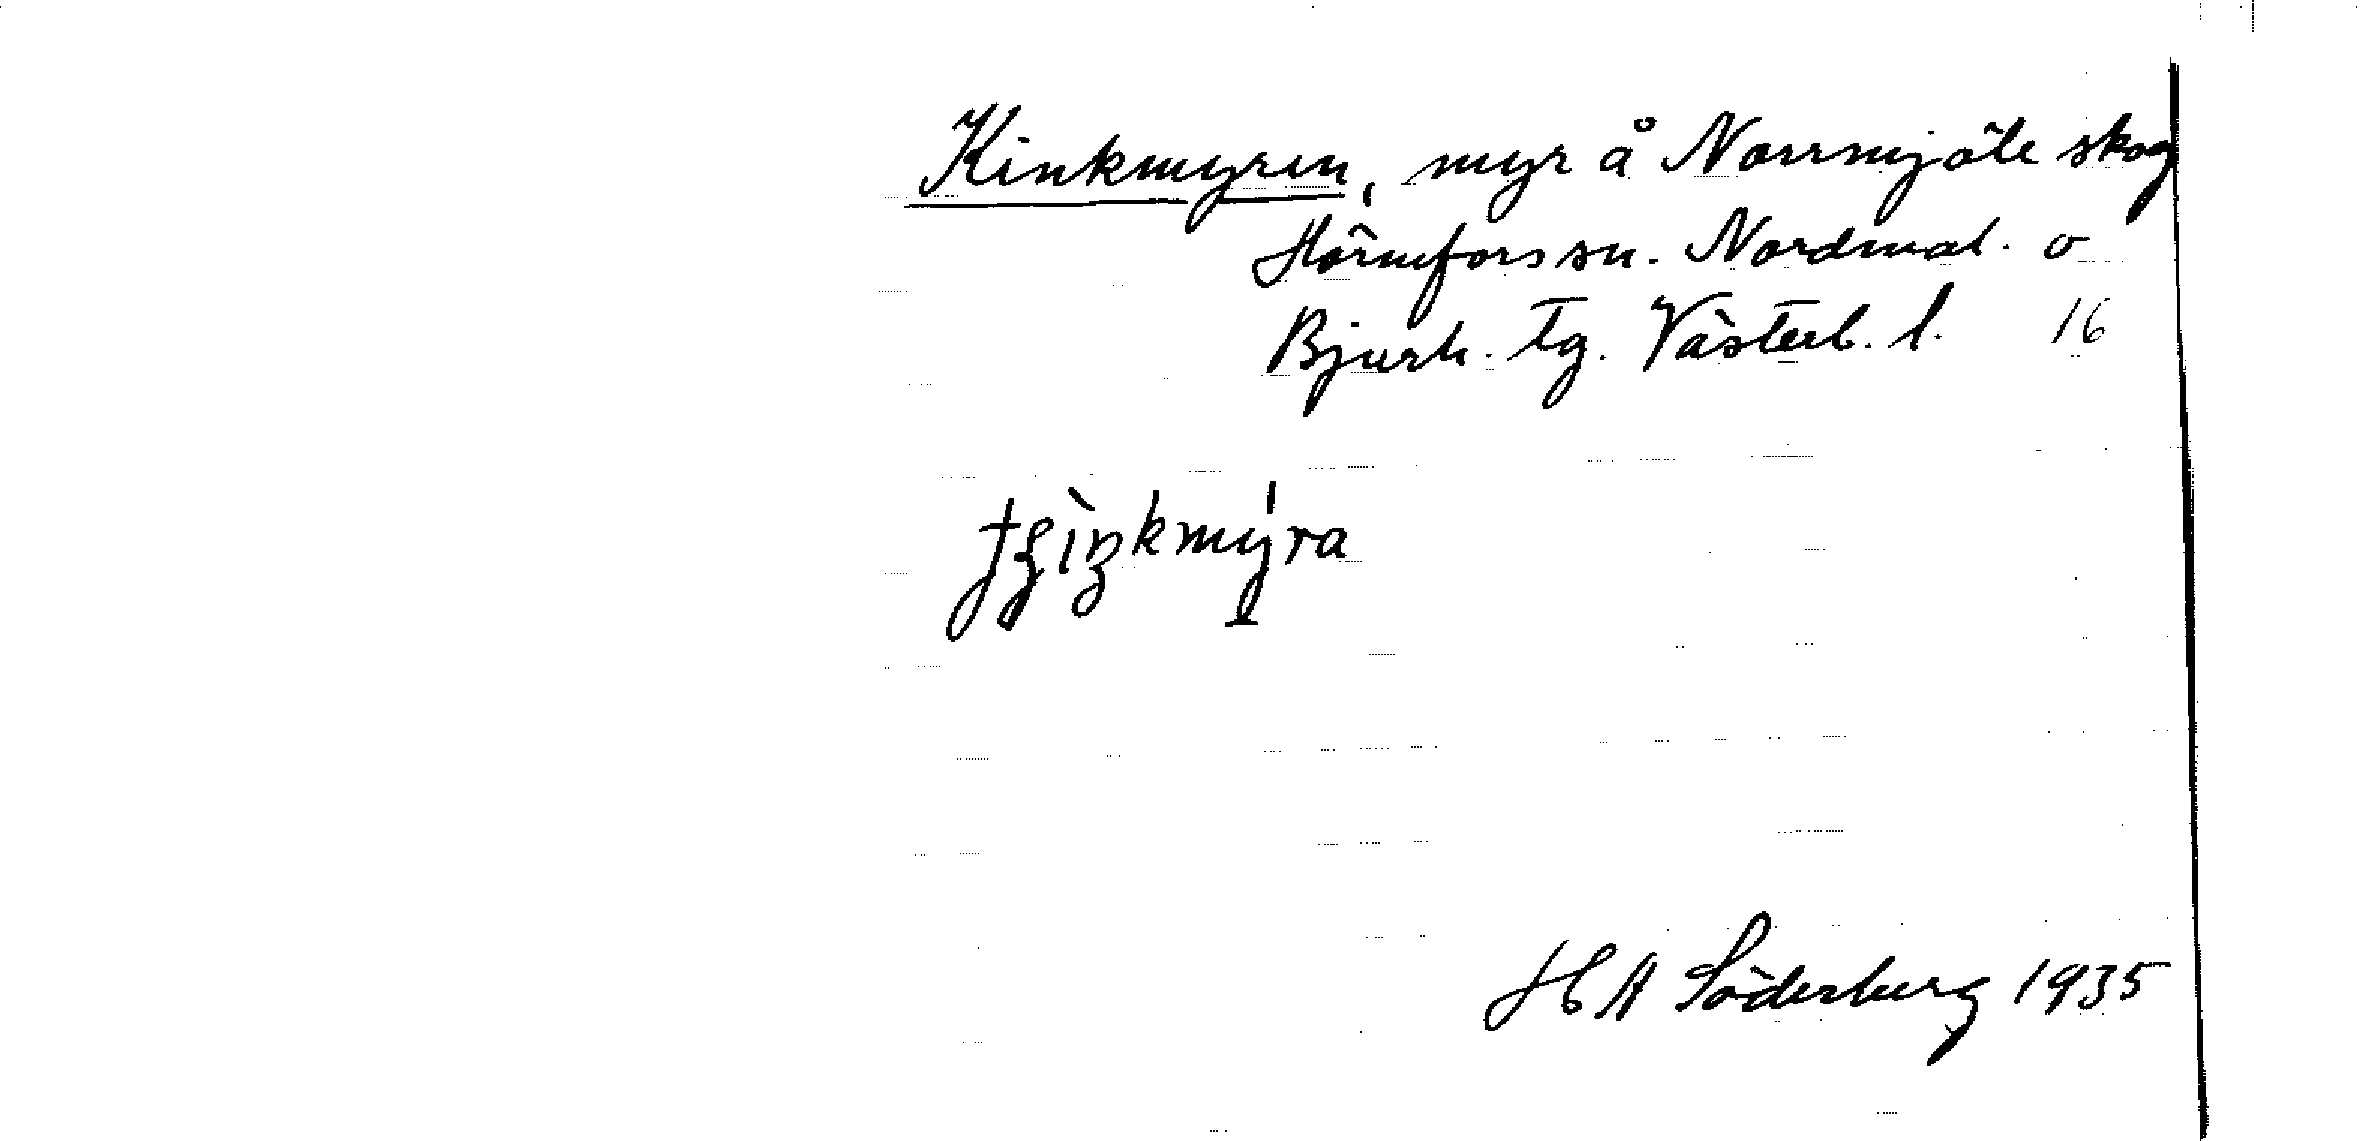 Kinkmyren, myr å Norrmjöle skog
Hörnefors sn. Nordmal. o
Bjurh. tg. Västerb. l. 16
H A Söderberg 1935